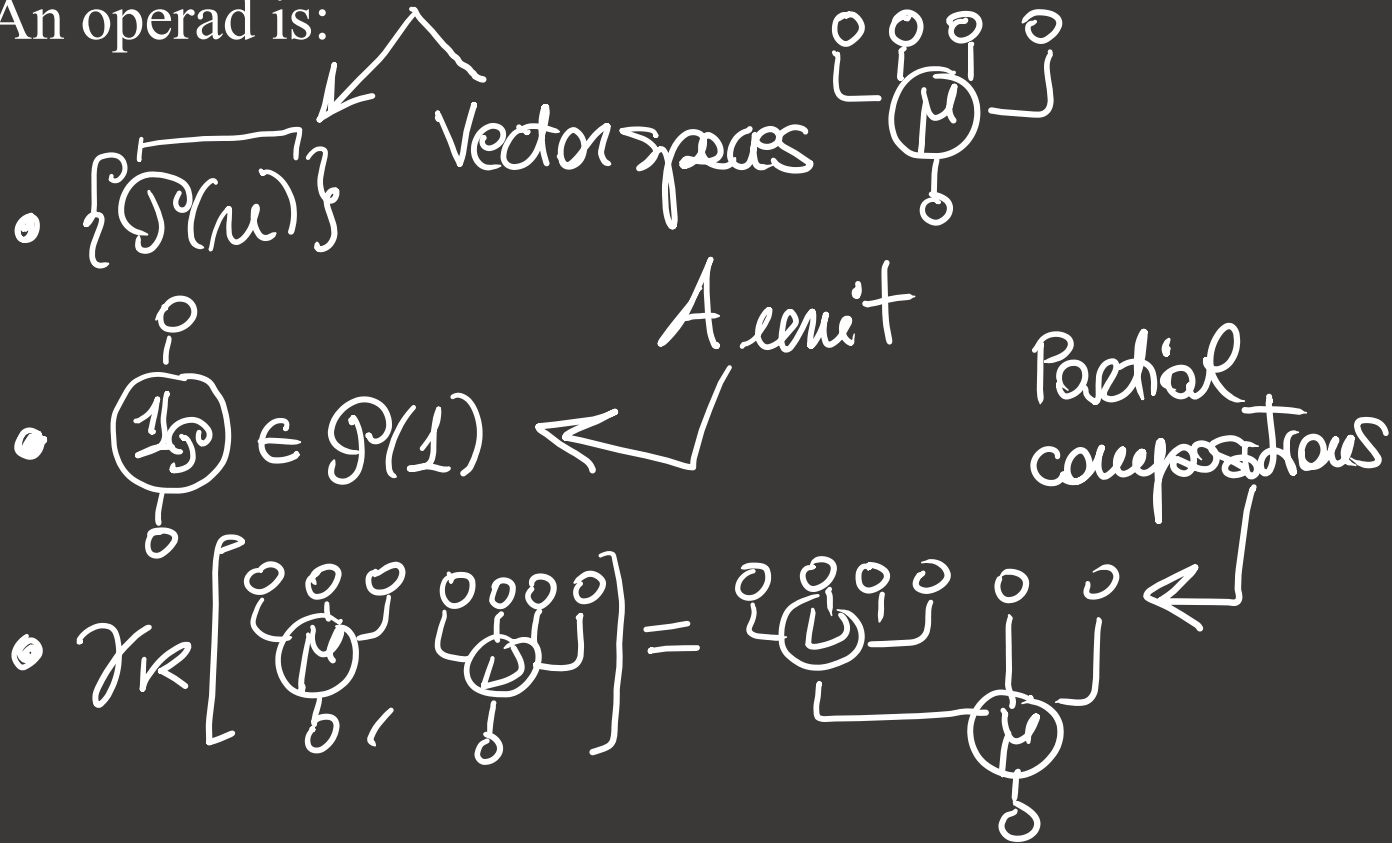 An operad is:
Vector spaces
μ
• {P(n)}
A unit
• 1_P ∈ P(1)
Partial
compositions
• γ_K [ μ , ν ] = ν μ